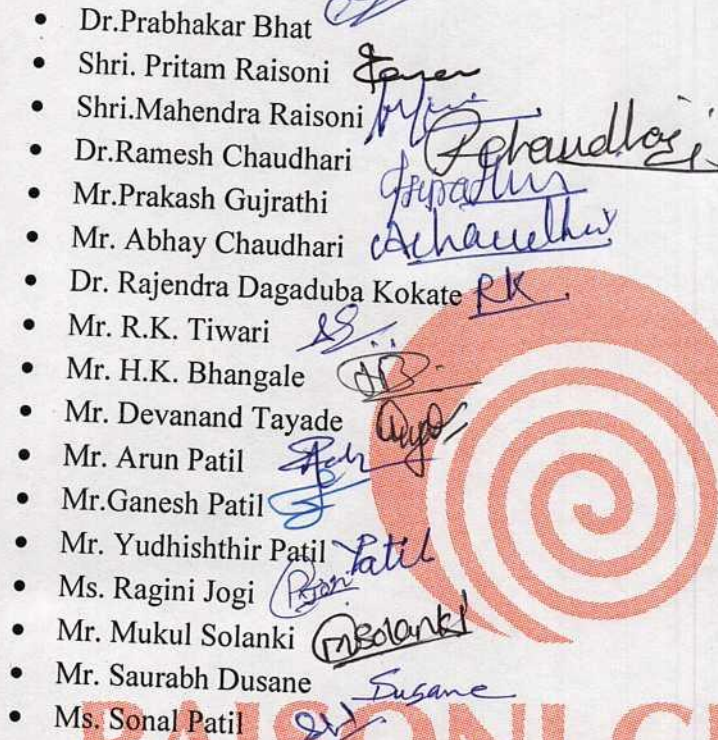 • Dr.Prabhakar Bhat
• Shri. Pritam Raisoni
• Shri.Mahendra Raisoni
• Dr.Ramesh Chaudhari Rchaudhari
• Mr.Prakash Gujrathi
• Mr. Abhay Chaudhari AChaudhari
• Dr. Rajendra Dagaduba Kokate RK
• Mr. R.K. Tiwari
• Mr. H.K. Bhangale HB
• Mr. Devanand Tayade
• Mr. Arun Patil
• Mr.Ganesh Patil
• Mr. Yudhishthir Patil Patil
• Ms. Ragini Jogi
• Mr. Mukul Solanki msolanki
• Mr. Saurabh Dusane Dusane
• Ms. Sonal Patil
RAISONI G